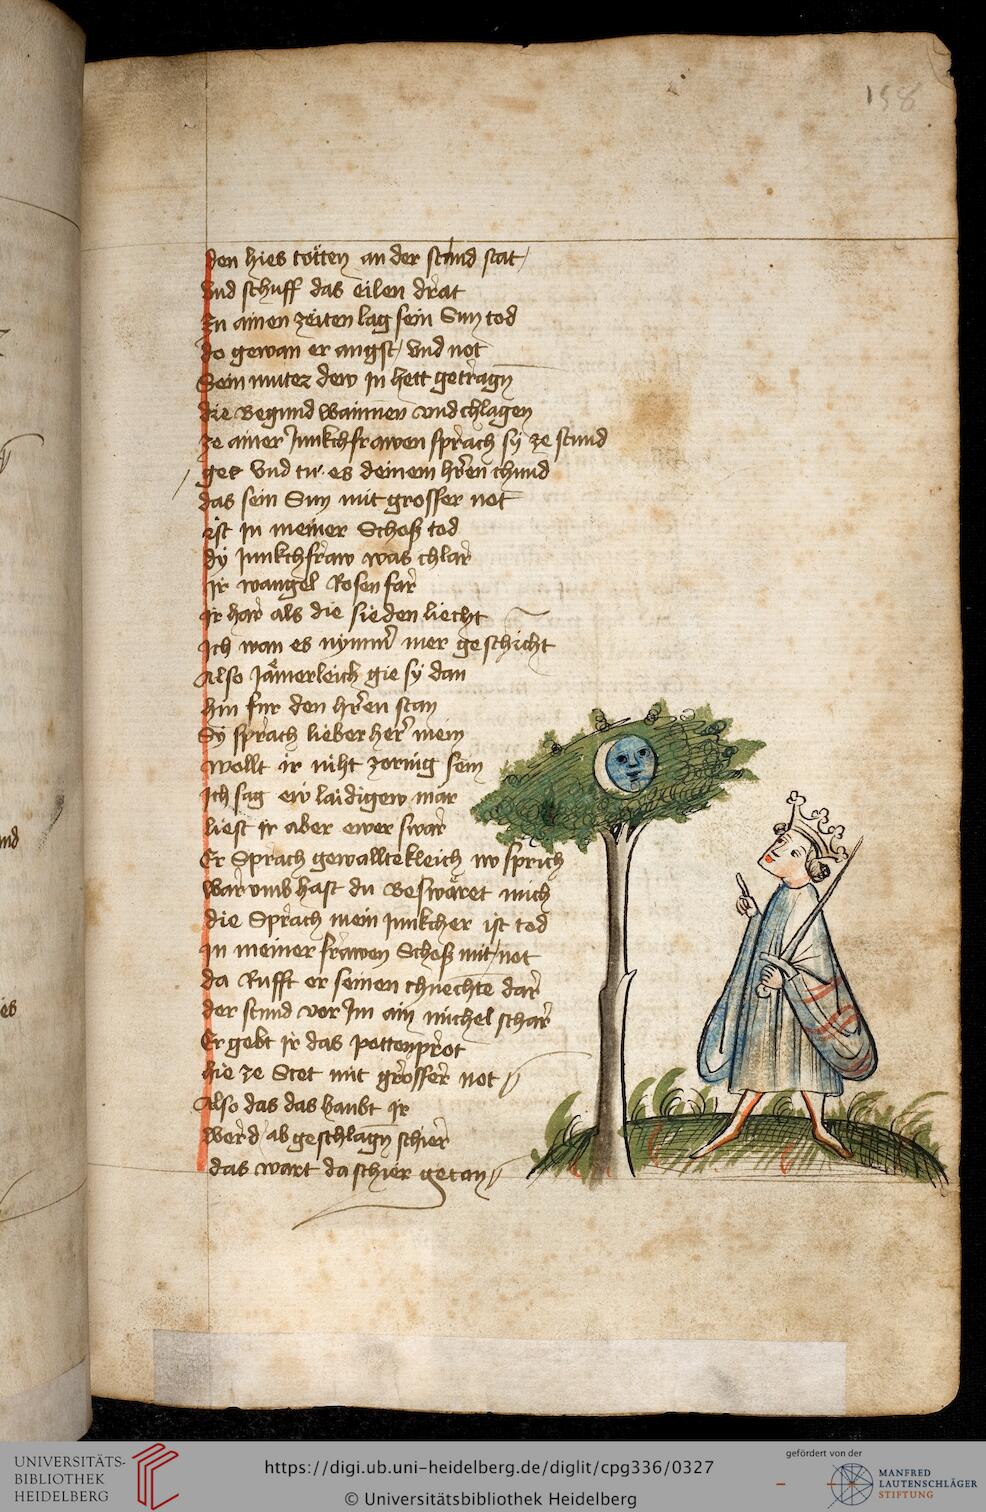 198
den hies tötten an der stund stat
Vnd schuff das eilen drat
In ainen zeiten lag sein Sun tod
do gewan er angst / vnd not
Sein muter dew In hett getragn
die Begund wainnen vnd chlagen
ze ainer Junkchfrawen sprach sy ze stund
get Vnd tu es deinem hren chund
das sein Sun mit grosser not
ist In meiner Schoß tod
dy Junkchfraw was chlar
Ir wangel Rosen far
Ir har als die sieden liecht
Ich wan es nymmer mer geschicht
Also Jämerleich gie sy dan
hin fur den hren stan
Sy sprach lieber her mein
wollt ir niht zornig sein
Ich sag ew laidigew mar
liest Ir aber ewer swar
Er Sprach gewalltekleich nv sprich
war vmb hast du Beswäret mich
die Sprach mein Junkcher ist tod
In meiner frawen Schoß mit not
da Rufft er seinen chnechte dar
der stund vor Im ain michel schar
Er gebt Ir das pottenprot
hie ze Stet mit grosser not
Also das das haubt Ir
werd / ab geschlagn schier
das wart da schier getan
UNIVERSITÄTS-
BIBLIOTHEK
HEIDELBERG
https://digi.ub.uni-heidelberg.de/diglit/cpg336/0327
© Universitätsbibliothek Heidelberg
gefördert von der
MANFRED
LAUTENSCHLÄGER
STIFTUNG